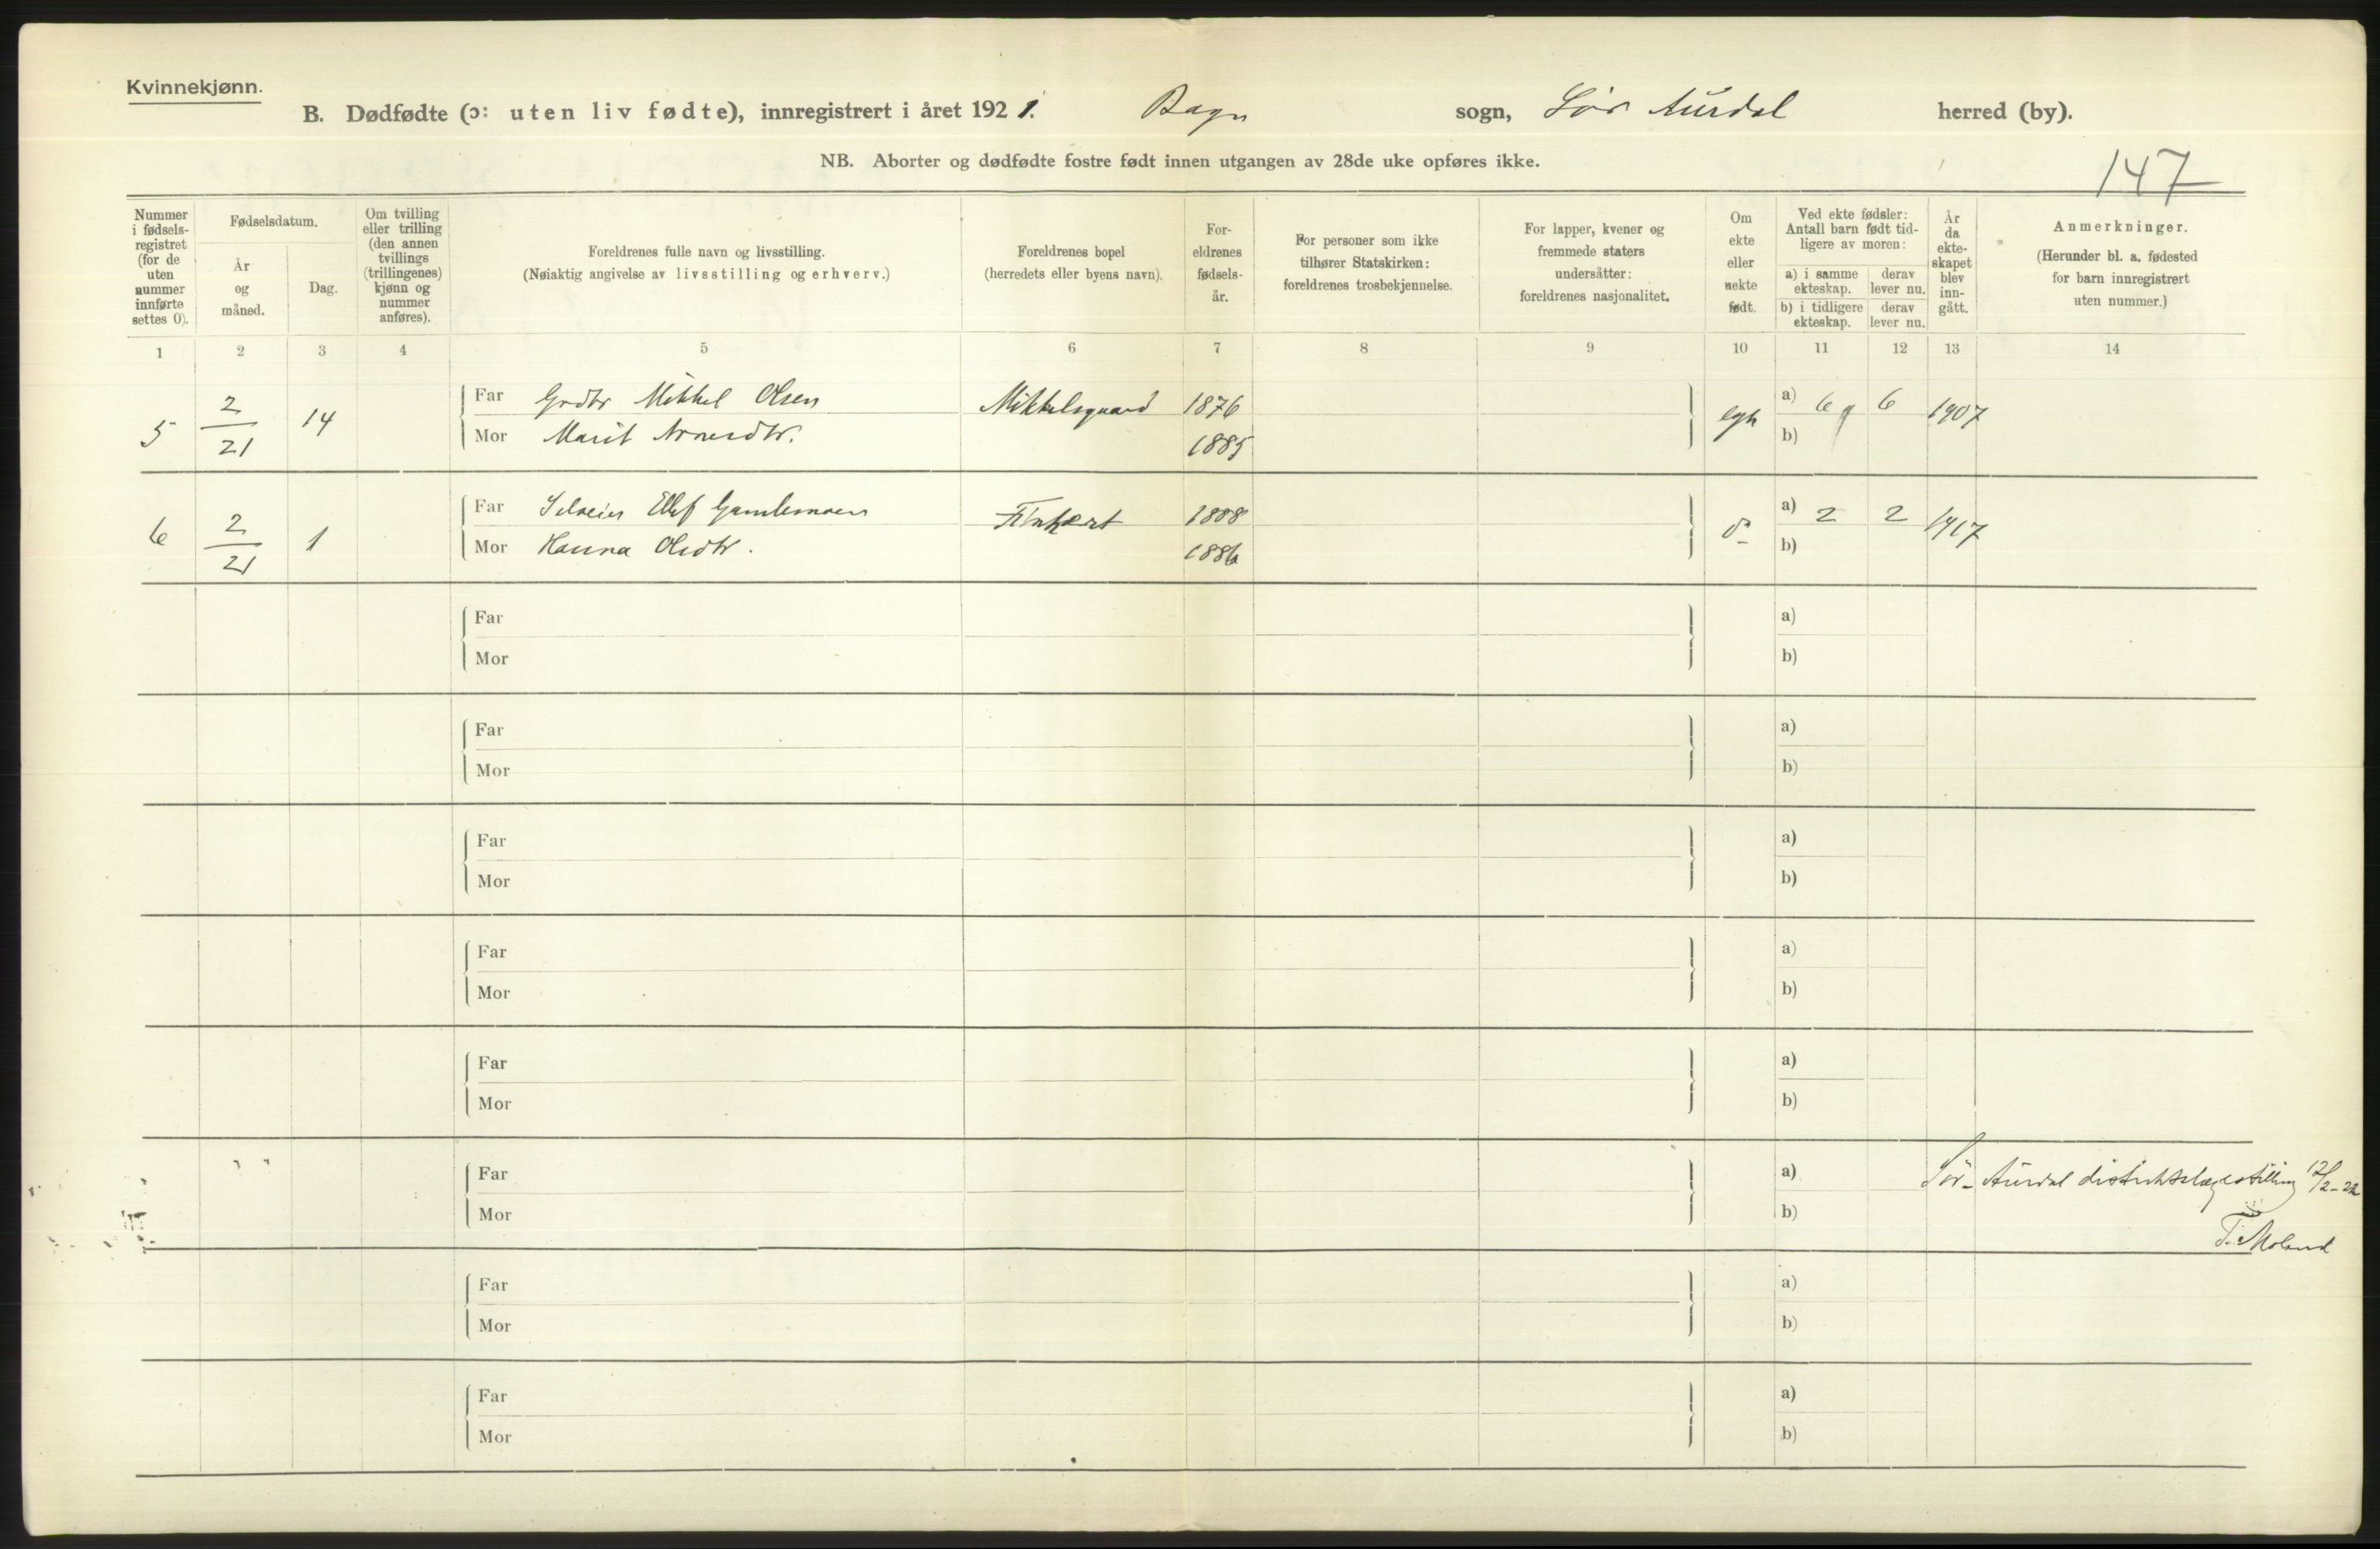 Kvinnekjønn.
B. Dødfødte (ɔ: uten liv fødte), innregistrert i året 1921. Bagn sogn, Sør Aurdal herred (by).
NB. Aborter og dødfødte fostre født innen utgangen av 28de uke opføres ikke.
147
Nummer i fødsels-registret (for de uten nummer innførte settes 0).
Fødselsdatum.
År og måned.
Dag.
Om tvilling eller trilling (den annen tvillings (trillingenes) kjønn og nummer anføres).
Foreldrenes fulle navn og livsstilling.
(Nøiaktig angivelse av livsstilling og erhverv.)
Foreldrenes bopel
(herredets eller byens navn).
For-eldrenes fødsels-år.
For personer som ikke tilhører Statskirken: foreldrenes trosbekjennelse.
For lapper, kvener og fremmede staters undersåtter: foreldrenes nasjonalitet.
Om ekte eller uekte født.
Ved ekte fødsler: Antall barn født tid-ligere av moren:
a) i samme ekteskap.
derav lever nu.
b) i tidligere ekteskap.
derav lever nu.
År da ekte-skapet blev inn-gått.
Anmerkninger.
(Herunder bl. a. fødested for barn innregistrert uten nummer.)
1 2 3 4 5 6 7 8 9 10 11 12 13 14
5 2/21 14 Far Grdbr Mikkel Olsen Mikkelsgaard 1876 egte a) 6 6 1907
Mor Marit Arnesdtr. 1885 b)
6 2/21 1 Far Selveier Ellef Gamlemoen 1888 do a) 2 2 1917
Mor Hanna Olsdtr. 1886 b)
Far a)
Mor b)
Far a)
Mor b)
Far a)
Mor b)
Far a)
Mor b)
Far a)
Mor b)
Far a) Sør-Aurdal distriktslægestilling 12/2-22
Mor b) T. Moland
Far a)
Mor b)
Far a)
Mor b)